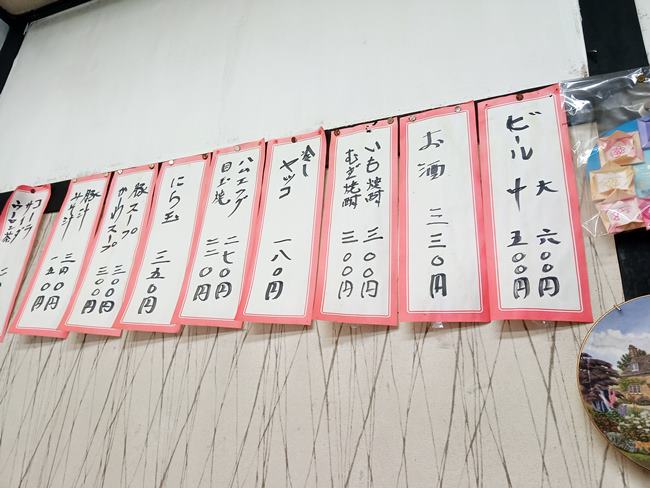 ビール 大 六〇〇円
中 五〇〇円
お酒 三三〇円
いも焼酎 三〇〇円
むぎ焼酎 三〇〇円
冷し
ヤッコ 一八〇円
ハムエッグ 二七〇円
目玉焼 二二〇円
にら玉 三五〇円
豚スープ 三〇〇円
かわりスープ 三〇〇円
豚汁 二四〇円
みそ汁 一五〇円
コーラ
サイダー
ウーロン茶